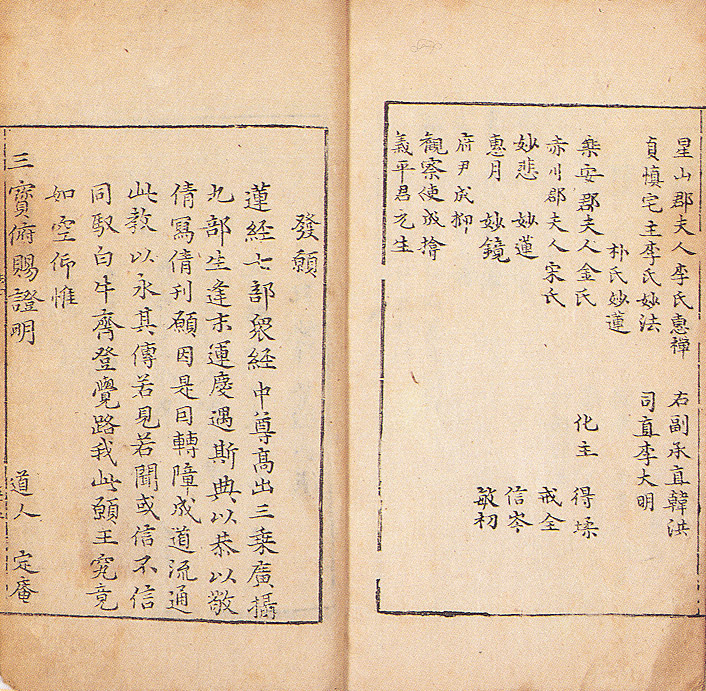 星山郡夫人李氏惠禪 右副承直韓洪
貞慎宅主李氏妙法 司直李大明
朴氏妙蓮
樂安郡夫人金氏 化主 得埰
赤川郡夫人宋氏 戒全
妙悲 妙蓮 信岑
惠月 妙鏡 敏初
府尹成抑
觀察使成揜
義平君元生
發願
蓮經七部衆經中尊高出三乘廣攝
九部生逢末運慶遇斯典以恭以敬
倩寫倩刊願因是囙轉障成道流通
此教以永其傳若見若聞或信不信
同馭白牛齊登覺路我此願王究竟
如空仰惟
三寶俯賜證明
道人 定庵